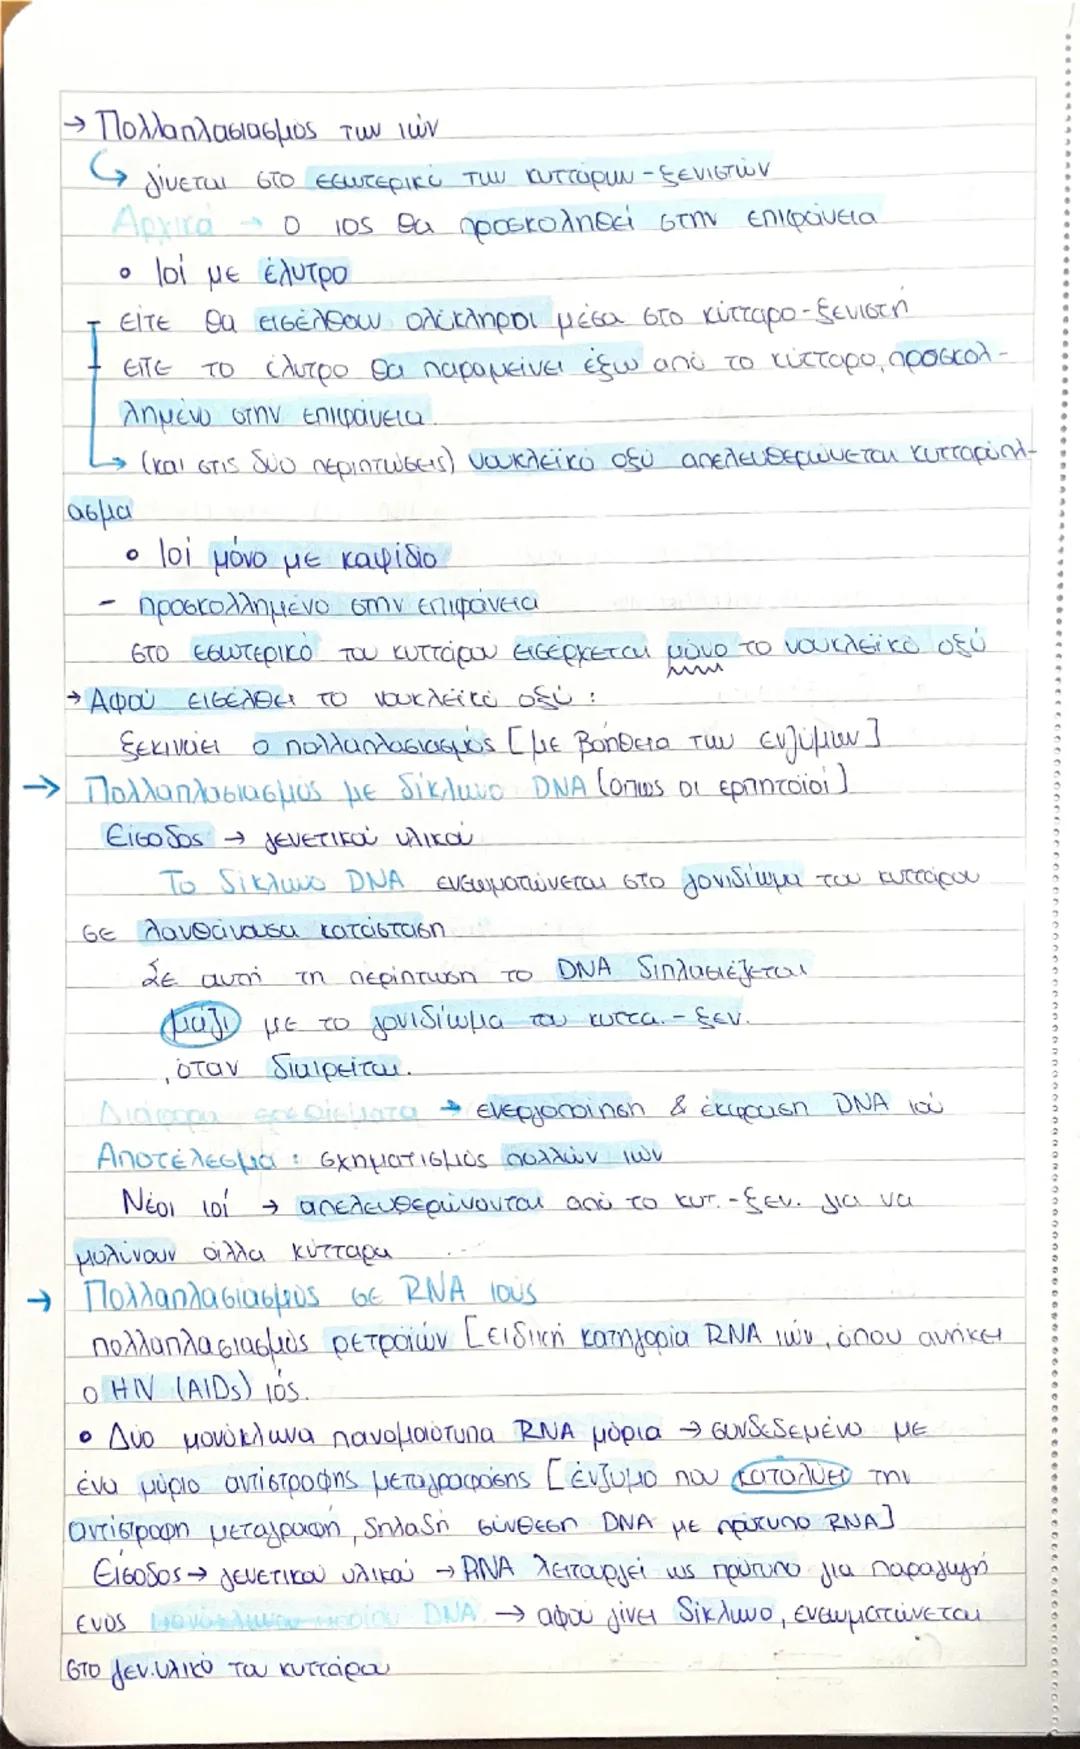 → Πολλαπλασιασμός των ιών
↳ γίνεται στο εσωτερικό των κυττάρων - ξενιστών
Αρχικά → Ο ιός θα προσκοληθεί στην επιφάνεια
• Ιοί με έλυτρο
είτε θα εισέλθουν ολόκληροι μέσα στο κύτταρο - ξενιστή
είτε το έλυτρο θα παραμείνει έξω από το κύτταρο, προσκολ-
λημένο στην επιφάνεια.
↳ (και στις δύο περιπτώσεις) νουκλεϊκό οξύ απελευθερώνεται κυτταρόπλ-
ασμα
• Ιοί μόνο με καψίδιο
- προσκολλημένο στην επιφάνεια
στο εσωτερικό του κυττάρου εισέρχεται μόνο το νουκλεϊκό οξύ
→ Αφού εισέλθει το νουκλεϊκό οξύ :
ξεκινάει ο πολλαπλασιασμός [με βοήθεια των ενζύμων]
→ Πολλαπλασιασμός με δίκλωνο DNA [όπως οι ερπητοϊοί]
Είσοδος → γενετικού υλικού
Το δίκλωνο DNA ενσωματώνεται στο γονιδίωμα του κυττάρου
σε λανθάνουσα κατάσταση
Σε αυτή τη περίπτωση το DNA διπλασιάζεται
μαζί με το γονιδίωμα του κυττα. - ξεν.
, όταν διαιρείται.
Διάφορα ερεθίσματα → ενεργοποίηση & έκφραση DNA ιού
Αποτέλεσμα : σχηματισμός πολλών ιών
Νέοι ιοί → απελευθερώνονται από το κυτ. - ξεν. για να
μολύνουν άλλα κύτταρα
→ Πολλαπλασιασμός σε RNA ιούς
πολλαπλασιασμός ρετροϊών [ειδική κατηγορία RNA ιών, όπου ανήκει
ο HIV (AIDs) ιός.
• Δύο μονόκλωνα πανομοιότυπα RNA μόρια → συνδεδεμένο με
ένα μόριο αντίστροφης μεταγραφάσης [ένζυμο που καταλύει την
αντίστροφη μεταγραφή, δηλαδή σύνθεση DNA με πρότυπο RNA]
Είσοδος → γενετικού υλικού → RNA λειτουργεί ως πρότυπο για παραγωγή
ενός μονόκλωνου μορίου DNA → αφού γίνει δίκλωνο, ενσωματώνεται
στο γεν. υλικό του κυττάρου